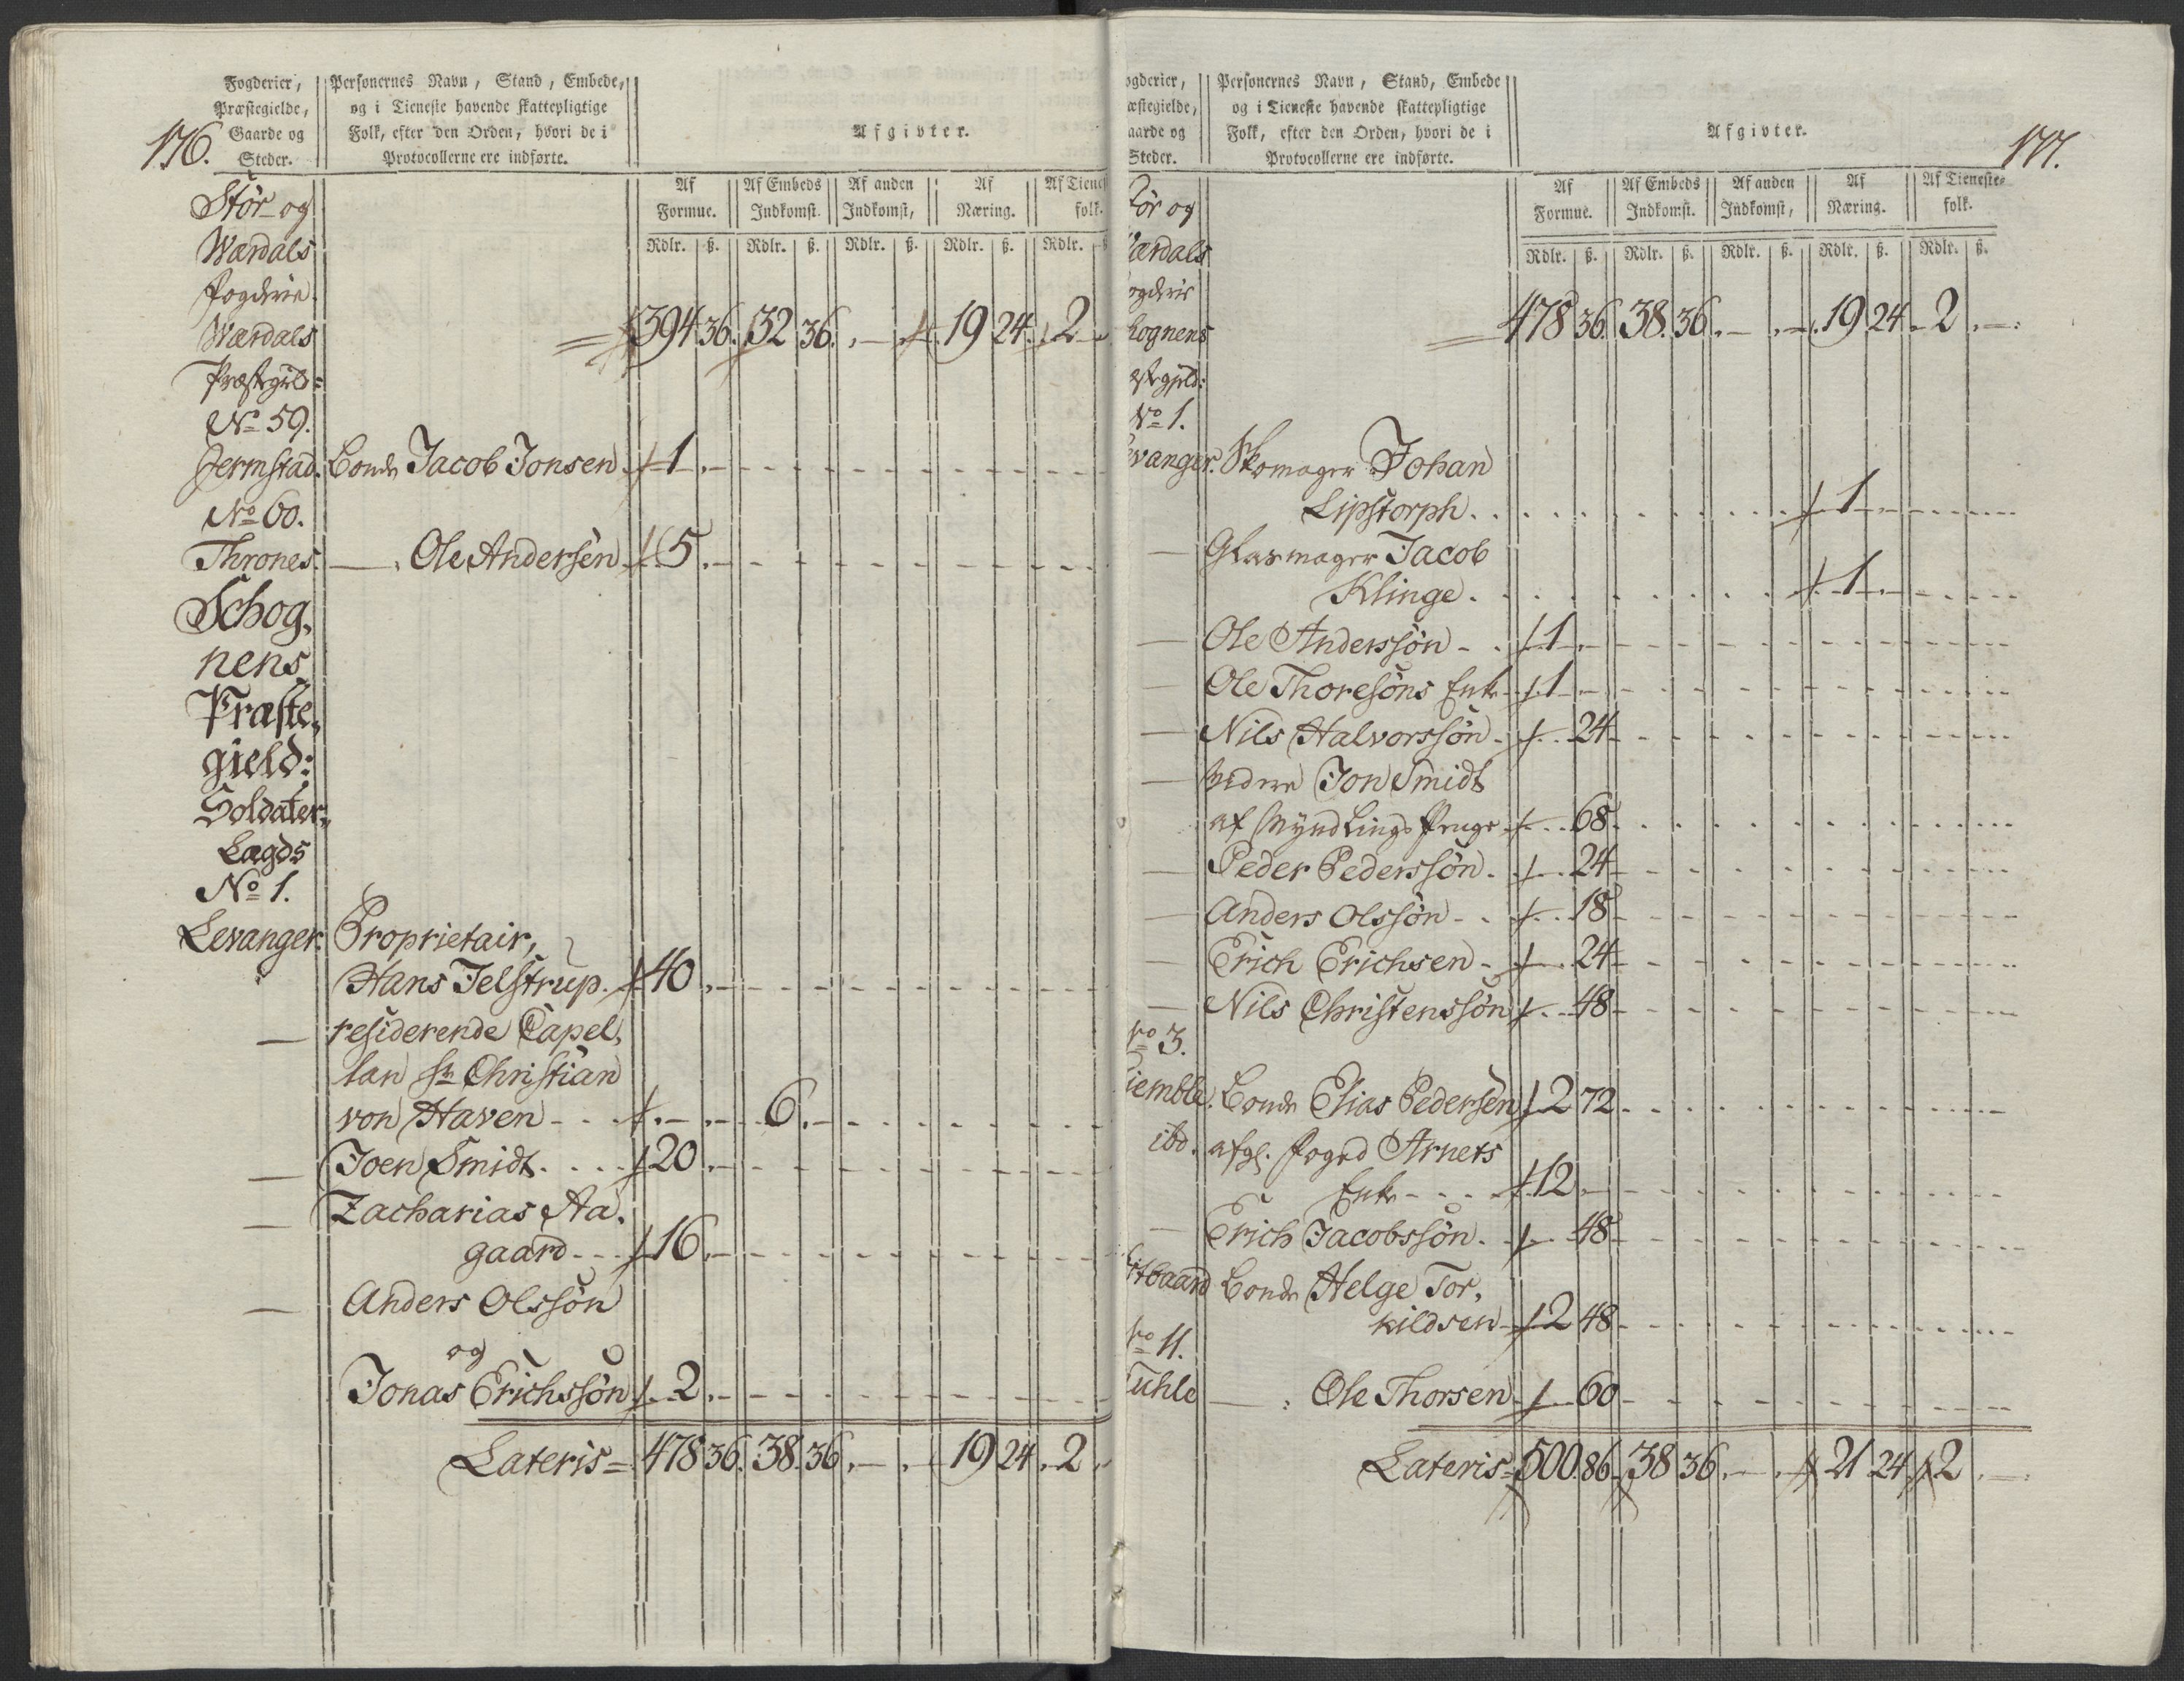 176.
Fogderier,
Præstegielde,
Gaarde og
Steder.
Personernes Navn, Stand, Embede,
og i Tieneste havende skattepligtige
Folk, efter den Orden, hvori de i
Protocollerne ere indførte.
Afgivter.
Af Formue. Af Embeds Indkomst. Af anden Indkomst, Af Næring. Af Tienest folk.
Rdlr. ß. Rdlr. ß. Rdlr. ß. Rdlr. ß. Rdlr.
Stör og
Wærdals
Fogderie.
Wærdals 394 36. 32 36. - - 19 24. 2 -
Præstegield:
No 59.
Jermstad. Bonde Jacob Jonsen 1 -
No 60.
Thrones. — Ole Andersen 5 -
Schog,
nens
Præste,
gield:
Soldater,
Lægds
No 1.
Levanger. Proprietair,
Hans Jelstrup. 40 -
— residerende Capel,
lan Hr Christian
von Haven - - - 6 -
— Joen Smidt. 20 -
— Zacharias Aa,
gaard - - - 16 -
— Anders Olssön
og
Jonas Erichssön 2 -
Lateris = 478 36. 38. 36. - - 19 24. 2
177.
ogderier,
æstegielde,
aarde og
Steder.
Personernes Navn, Stand, Embede
og i Tieneste havende skattepligtige
Folk, efter den Orden, hvori de i
Protocollerne ere indførte.
Afgivter.
Af Formue. Af Embeds Indkomst. Af anden Indkomst, Af Næring. Af Tieneste- folk.
Rdlr. ß. Rdlr. ß. Rdlr. ß. Rdlr. ß. Rdlr. ß.
tör og
ærdals
ogderie
hognens 478 36. 38. 36. - - 19 24. 2 -
æstegield:
No 1.
evanger. Skomager Johan
Lipstorph. 1 -
— Glasmager Jacob
Klinge. 1 -
— Ole Anderssön - 1 -
— Ole Thoresöns Enke 1 -
— Nils Halvorssön - 24
— Jon Smidt
af Myndlings Penge 68
— Peder Pederssön. 24
— Anders Olssön - 18
— Erich Erichsen - 24
— Nils Christenssön 48
No 3.
iemble. Bonde Elias Pedersen 2 72
ibd. afgl. Foged Arnets
Enke - - - 12 -
— Erich Jacobssön. 48
tbaard Bonde Helge Tor,
kildsen - 2 48
No 11.
uhle — Ole Thorsen 60
Lateris = 500. 86 38 36. - - 21 24 2 -